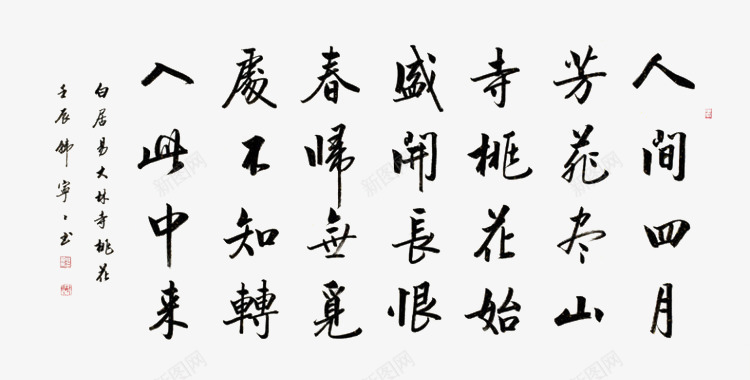 人間四月
芳菲尽山
寺桃花始
盛開長恨
春歸無覓
處不知轉
入此中来
白居易大林寺桃花
壬辰 寧寧书
新图网